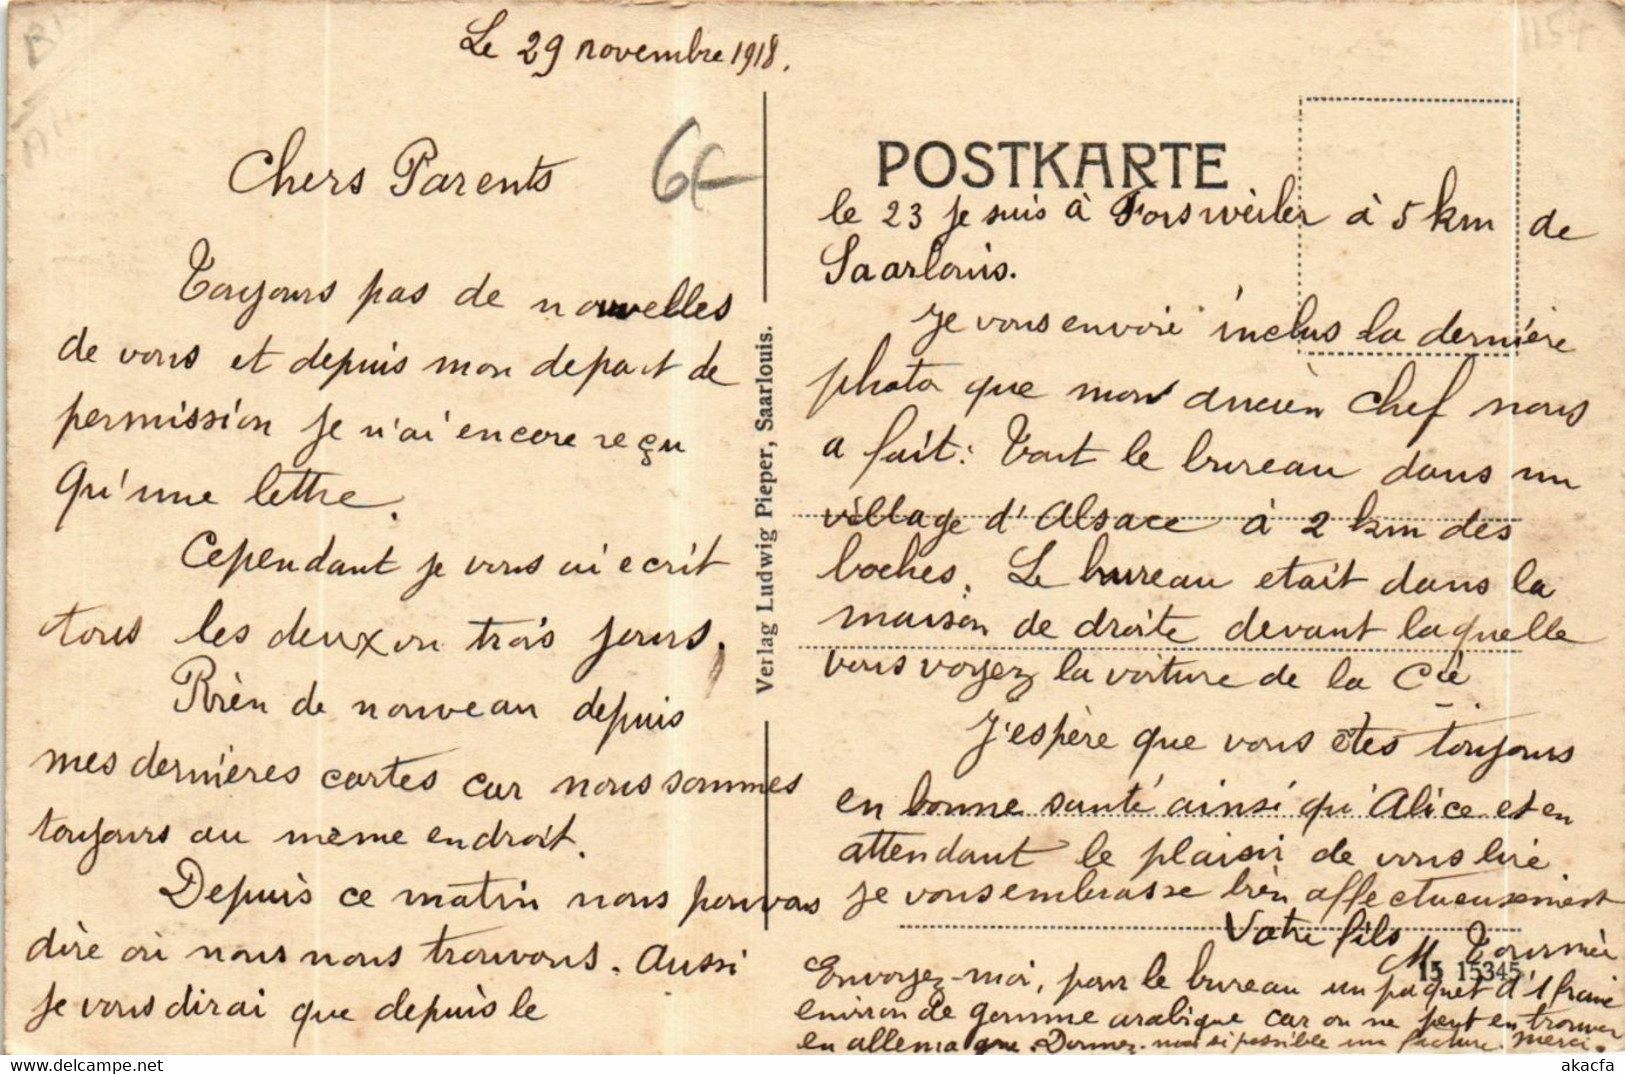 Le 29 novembre 1918.
Chers Parents
6€
Toujours pas de nouvelles
de vous et depuis mon depart de
permission je n'ai encore reçu
qu'une lettre.
Cependant je vous ai ecrit
tous les deux ou trois jours.
Rien de nouveau depuis
mes dernières cartes car nous sommes
toujours au même endroit.
Depuis ce matin nous pouvons
dire où nous nous trouvons. Aussi
je vous dirai que depuis le
Verlag Ludwig Pieper, Saarlouis.
POSTKARTE
le 23 je suis à Forsweiler à 5 km de
Saarlouis.
Je vous envoie inclus la dernière
photo que mon ancien chef nous
a fait: Tout le bureau dans un
village d'Alsace à 2 km des
boches. Le bureau etait dans la
maison de droite devant laquelle
vous voyez la voiture de la Cie.
J'espère que vous êtes toujours
en bonne santé ainsi qu'Alice et en
attendant le plaisir de vous lire
je vous embrasse bien affectueusement
Votre fils M
15 15345
Envoyez-moi, pour le bureau un paquet d'1 franc
environ de gomme arabique car on ne peut en trouver
en allemagne. Donnez-moi si possible une facture. Merci.
1154
akacfa
akpool.co.uk